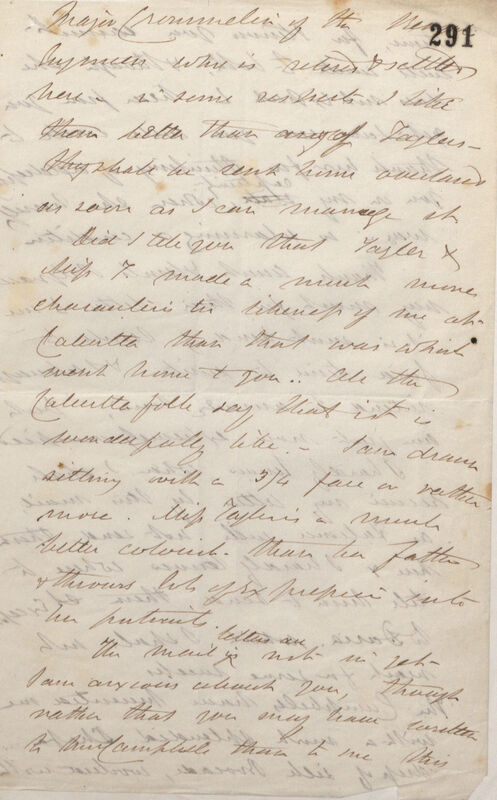 291
Major Crommelin of the
Engineers who is retired & settled
here in some respects I like
them better than any of Taylers -
they shall be sent home overland
as soon as I can manage it
Did I tell you that Tayler &
Miss T made a much more
characteristic likeness of me at
Calcutta than that was which
went home to you .. All the
Calcutta folk say that it is
wonderfully like. - I am drawn
sitting with a 3/4 face or rather
more. Miss Tayler is a much
better colourist than her father
& throws lots of expression into
her portraits.
The mail letters are not in yet
I am anxious about you, though
rather that you may have written
to Campbell than to me this